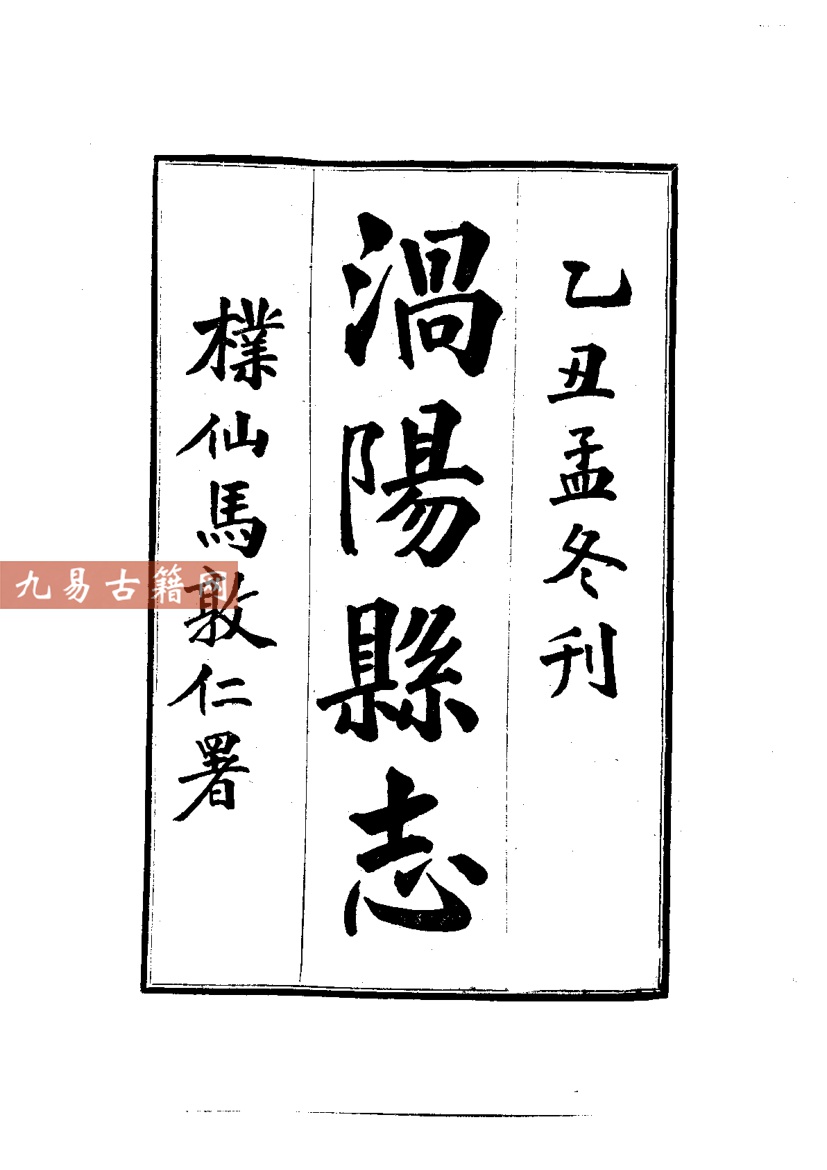 乙丑孟冬刊
渦陽縣志
樸仙馬敦仁署
九易古籍网